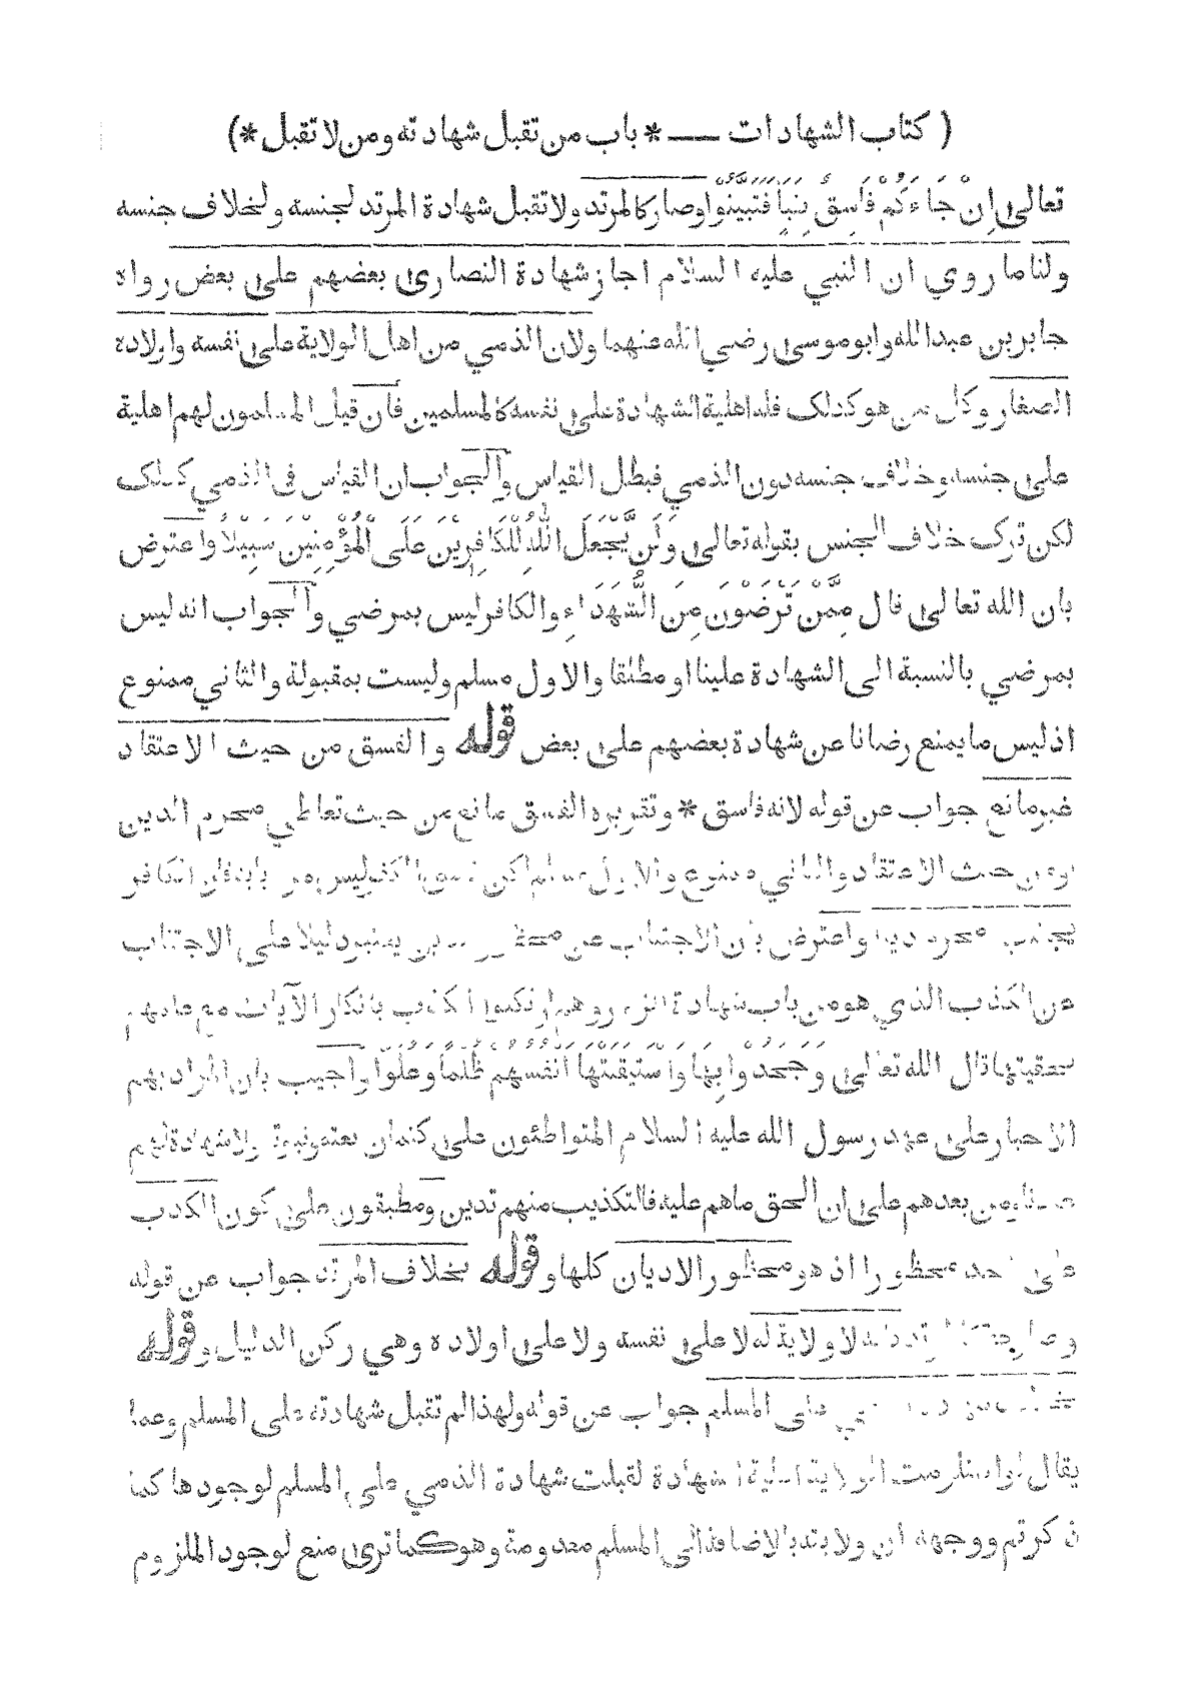 ( كتاب الشهادات — * باب من تقبل شهادته ومن لا تقبل * )
تعالى إِنْ جَاءَكُمْ فَاسِقٌ بِنَبَأٍ فَتَبَيَّنُوْا وصار كالمرتد ولا تقبل شهادة المرتد لجنسه ولخلاف جنسه
ولنا ما روي ان النبي عليه السلام اجاز شهادة النصارى بعضهم على بعض رواه
جابر بن عبد الله وابو موسى رضي الله عنهما ولان الذمي من اهل الولاية على نفسه واولاده
الصغار وكل من هو كذلك فله اهلية الشهادة على نفسه كالمسلمين فان قيل المسلمون لهم اهلية
على جنسه وخلاف جنسه دون الذمي فبطل القياس والجواب ان القياس في الذمي كذلك
لكن ترك خلاف الجنس بقوله تعالى وَلَنْ يَّجْعَلَ اللّٰهُ لِلْكَافِرِيْنَ عَلَى الْمُؤْمِنِيْنَ سَبِيْلًا واعترض
بان الله تعالى قال مِمَّنْ تَرْضَوْنَ مِنَ الشُّهَدَاءِ والكافر ليس بمرضي والجواب انه ليس
بمرضي بالنسبة الى الشهادة علينا او مطلقا والاول مسلم وليست بمقبولة والثاني ممنوع
اذ ليس ما يمنع رضانا عن شهادة بعضهم على بعض قوله والفسق من حيث الاعتقاد
غير مانع جواب عن قوله لانه فاسق * وتقريره الفسق مانع من حيث تعاطي محرم الدين
حيث الاعتقاد والثاني ممنوع والاول مسلم لكن ليس فان الكافر
يجتنب محرم دينه واعترض بان الاجتناب عن دليلا على الاجتناب
عن الكذب الذي هو من باب شهادة الزور وهم ارتكبوا الكذب بانكار الآيات مع علمهم
بحقيتها قال الله تعالى وَجَحَدُوْا بِهَا وَاسْتَيْقَنَتْهَا أَنْفُسُهُمْ ظُلْمًا وَّعُلُوًّا واجيب بان المراد بهم
الاحبار على عهد رسول الله عليه السلام المتواطئون على كتمان بعثه ونبوته ولا شهادة لهم
ومن بعدهم على ان الحق ما هم عليه فالتكذيب منهم تدين ومطبقون على كون الكذب
على محظورا اذ هو محظور الاديان كلها وقوله بخلاف المرتد جواب عن قوله
لا ولاية له لا على نفسه ولا على اولاده وهي ركن الدليل وقوله
على المسلم جواب عن قوله ولهذا لم تقبل شهادته على المسلم وعما
يقال لو استلزمت الولاية اهلية الشهادة لقبلت شهادة الذمي على المسلم لوجودها كما
ذكرتم ووجهه ان ولايته بالاضافة الى المسلم معدومة وهو كما ترى منع لوجود الملزوم